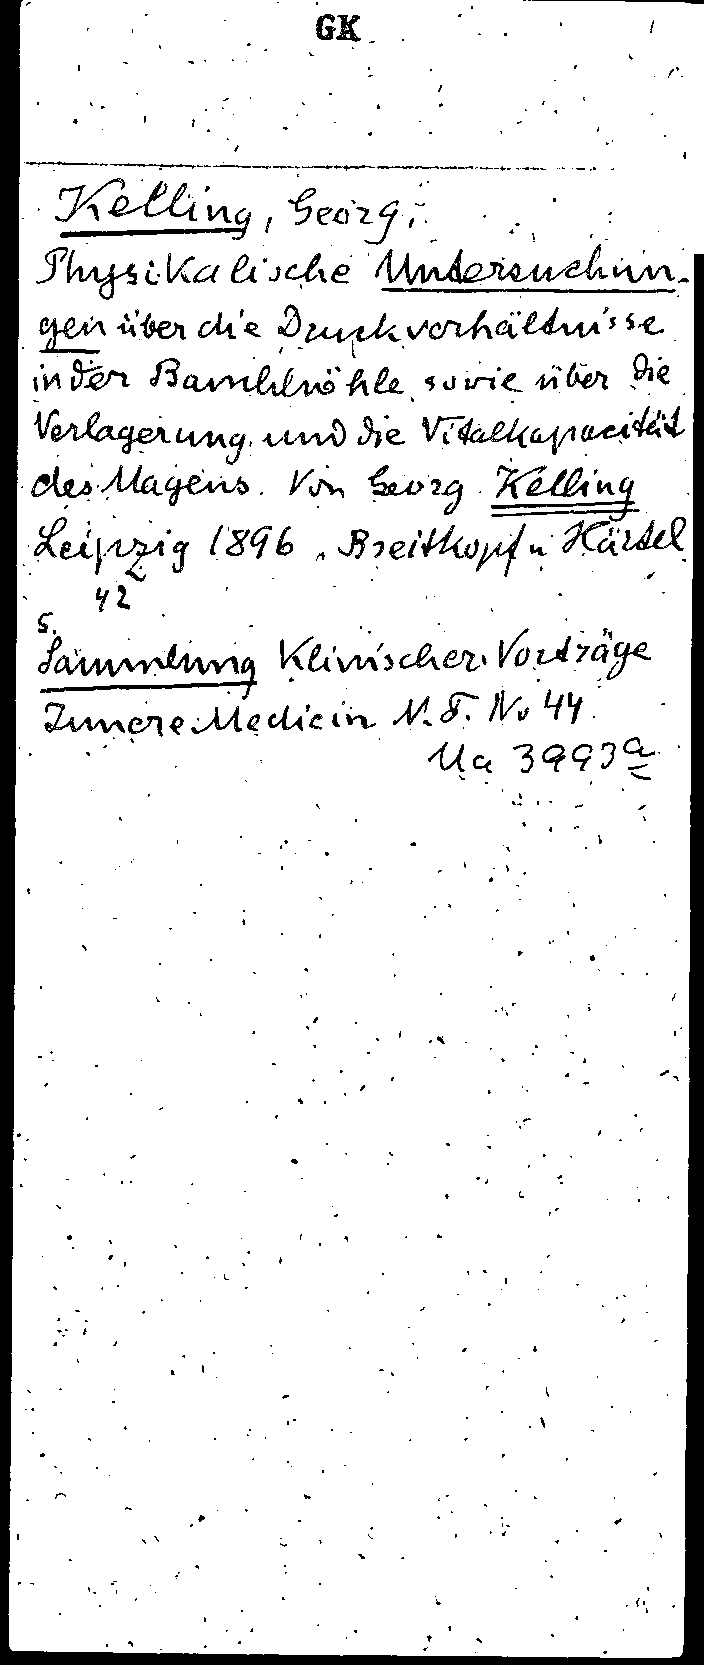 GK
Kelling, Georg,
Physikalische Untersuchun-
gen über die Druckverhältnisse
in der Bauchhöhle, sowie über die
Verlagerung und die Vitalkapacität
des Magens. Von Georg Kelling
Leipzig 1896, Breitkopf u Härtel
42
S.
Sammlung Klinischer Vorträge
Innere Medicin N. F. No 44
Ua 3993a